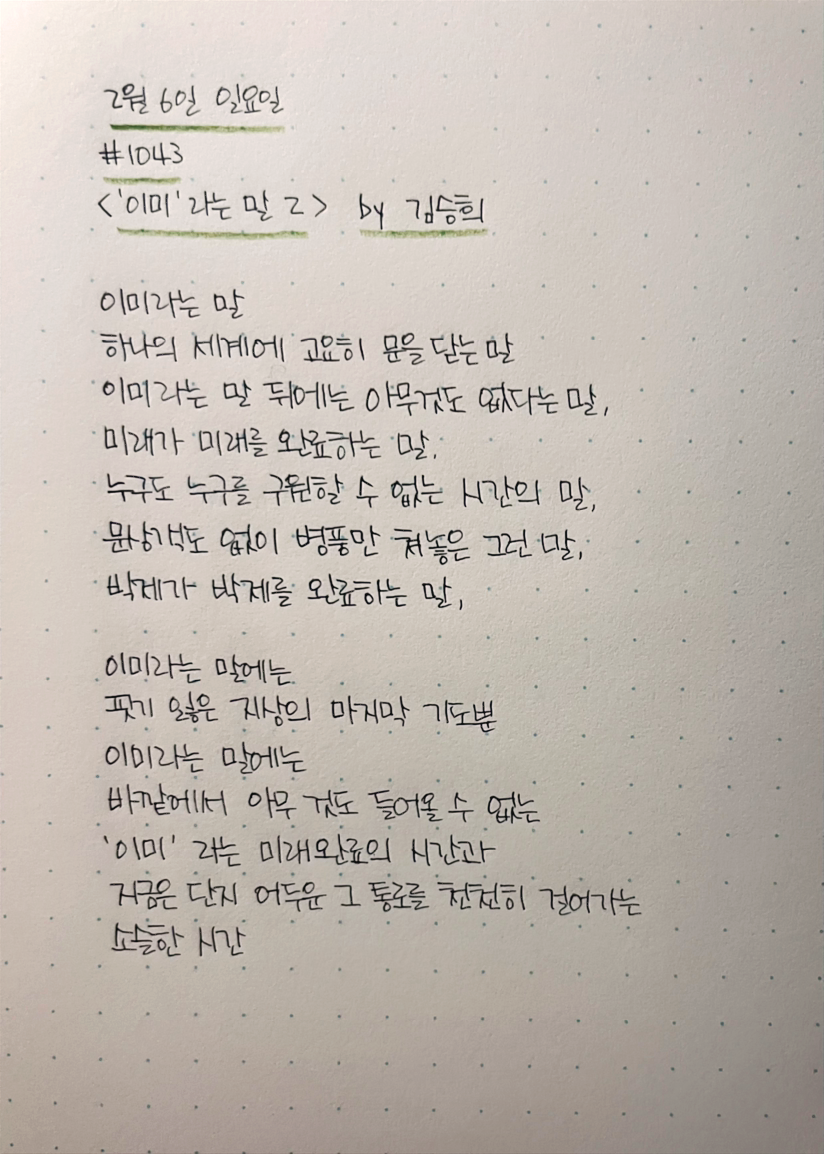 2월 6일 일요일
#1043
<'이미'라는 말 2> by 김승희
이미라는 말
하나의 세계에 고요히 문을 닫는 말
이미라는 말 뒤에는 아무것도 없다는 말,
미래가 미래를 완료하는 말,
누구도 누구를 구원할 수 없는 시간의 말,
문상객도 없이 병풍만 쳐놓은 그런 말,
박제가 박제를 완료하는 말,
이미라는 말에는
핏기 잃은 지상의 마지막 기도뿐
이미라는 말에는
바깥에서 아무 것도 들어올 수 없는
'이미' 라는 미래완료의 시간과
지금은 단지 어두운 그 통로를 천천히 걸어가는
소슬한 시간